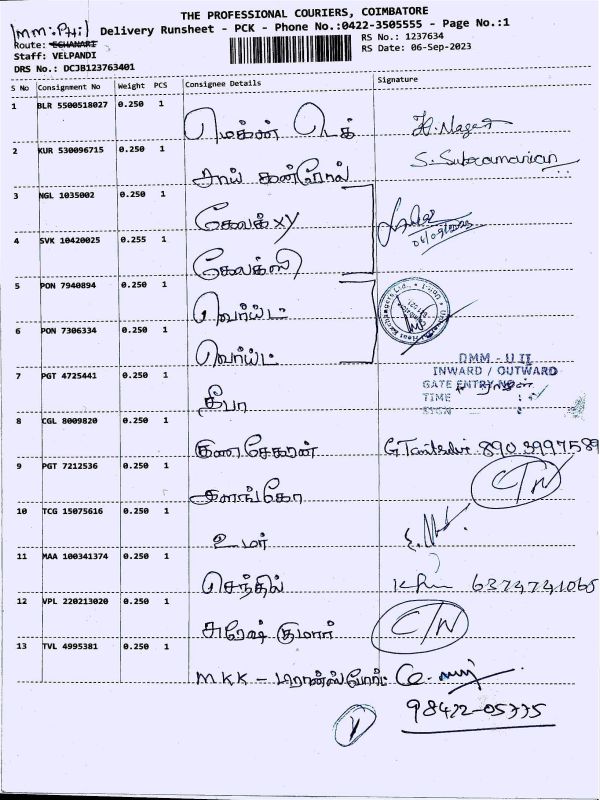 THE PROFESSIONAL COURIERS, COIMBATORE
Delivery Runsheet - PCK - Phone No.:0422-3505555 - Page No.:1
Route: EGHANARI
RS No.: 1237634
Staff: VELPANDI
RS Date: 06-Sep-2023
DRS No.: DCJB123763401
S No Consignment No Weight PCS Consignee Details Signature
1 BLR 5500518027 0.250 1 மெக்கன் டெக்
2 KUR 530096715 0.250 1 சாய் கன்ரோல் S. Subramanian
3 NGL 1035002 0.250 1 கேலக்xy
06/09/2023
4 SVK 10420025 0.255 1 கேலக்ஸி
5 PON 7940894 0.250 1 வெர்ய்ட்
6 PON 7306334 0.250 1 வெர்ய்ட்
DMM - U II
INWARD / OUTWARD
GATE ENTRY NO
TIME :
SIGN :
7 PGT 4725441 0.250 1 தீபா
8 CGL 8009820 0.250 1 குணசேகரன் 890 3997589
9 PGT 7212536 0.250 1 இளங்கோ C/N
10 TCG 15075616 0.250 1 உமர்
11 MAA 100341374 0.250 1 செந்தில் 6374741065
12 VPL 220213020 0.250 1 சுரேஷ் குமார் C/N
13 TVL 4995381 0.250 1 MKK - டிரான்ஸ்போர்ட்
98422-05335